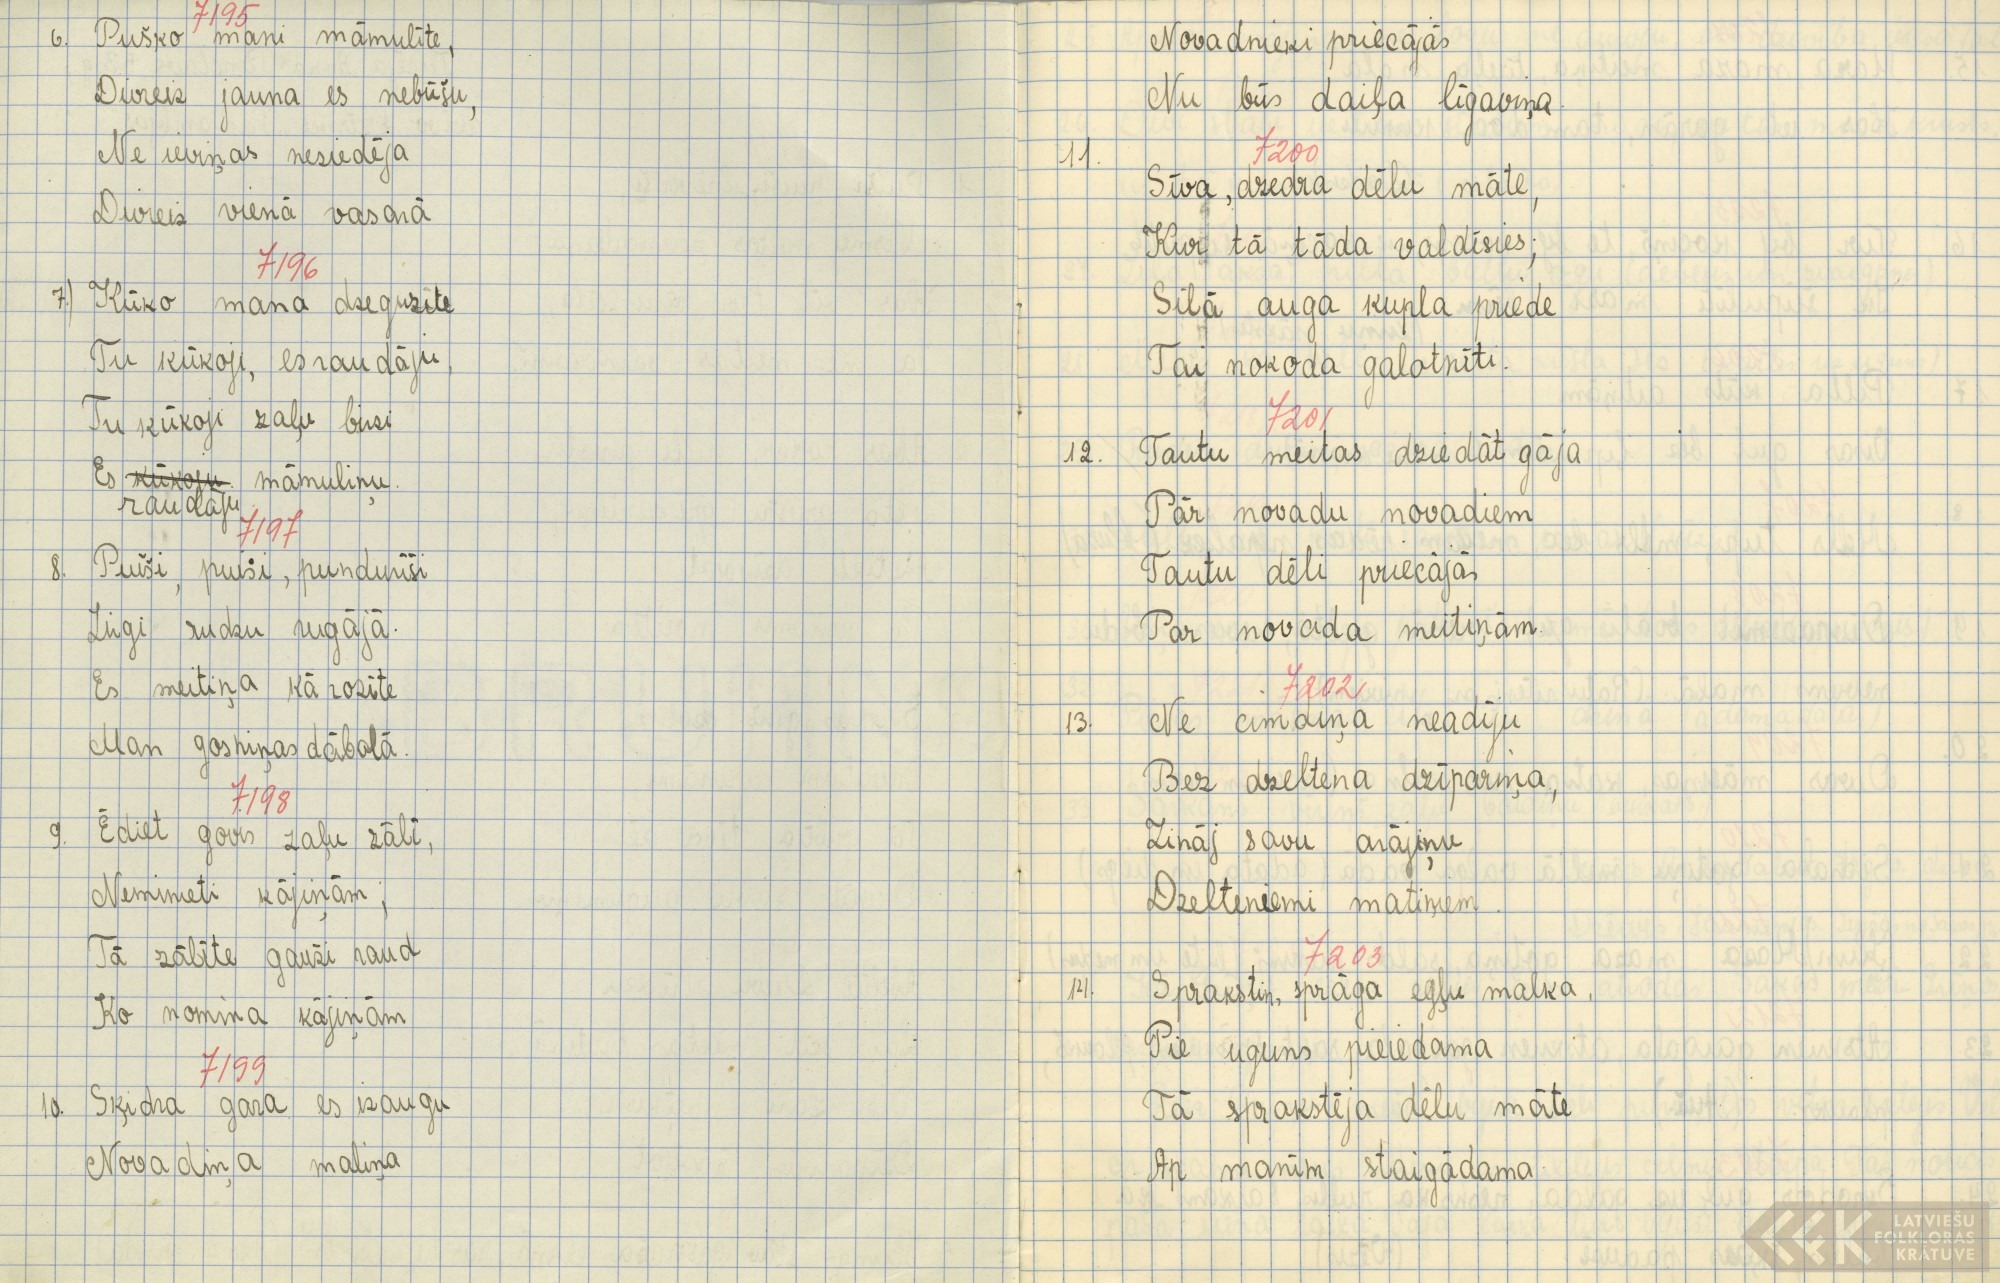 7195
6. Puško mani māmulīte,
Divreiz jauna es nebūšu,
Ne ieviņas neziedēja
Divreiz vienā vasarā
7196
7.) Kūko mana dzeguzīte
Tu kūkoji, es raudāju,
Tu kūkoji zaļu birzi
Es kūkoju māmuliņu.
raudāju
7197
8. Puiši, puiši, pundurīši
Zirgi rudzu rugājā.
Es meitiņa kā rozīte
Man gosniņas dābolā.
7198
9. Ēdiet govis zaļu zāli,
Neminieti kājiņām;
Tā zālīte gauži raud
Ko nomina kājiņām
7199
10. Šķidra gara es izaugu
Novadiņa maliņa
Novadnieki priecājās
Nu būs daiļa līgaviņa.
7200
11. Sīva, dzedra dēlu māte,
Kur tā tāda valdīsies;
Silā auga kupla priede
Tai nokoda galotnīti.
7201
12. Tautu meitas dziedāt gāja
Pār novadu novadiem
Tautu dēli priecājās
Par novada meitiņām.
7202
13. Ne cimdiņa neadīju
Bez dzeltena dzīpariņa,
Zināj savu arājiņu
Dzelteniemi matiņiem.
7203
14. Sprakstiņ, sprāga egļu malka,
Pie uguns pieiedama
Tā sprakstēja dēlu māte
Ap manīm staigādama.
LATVIEŠU
FOLKLORAS
KRĀTUVE